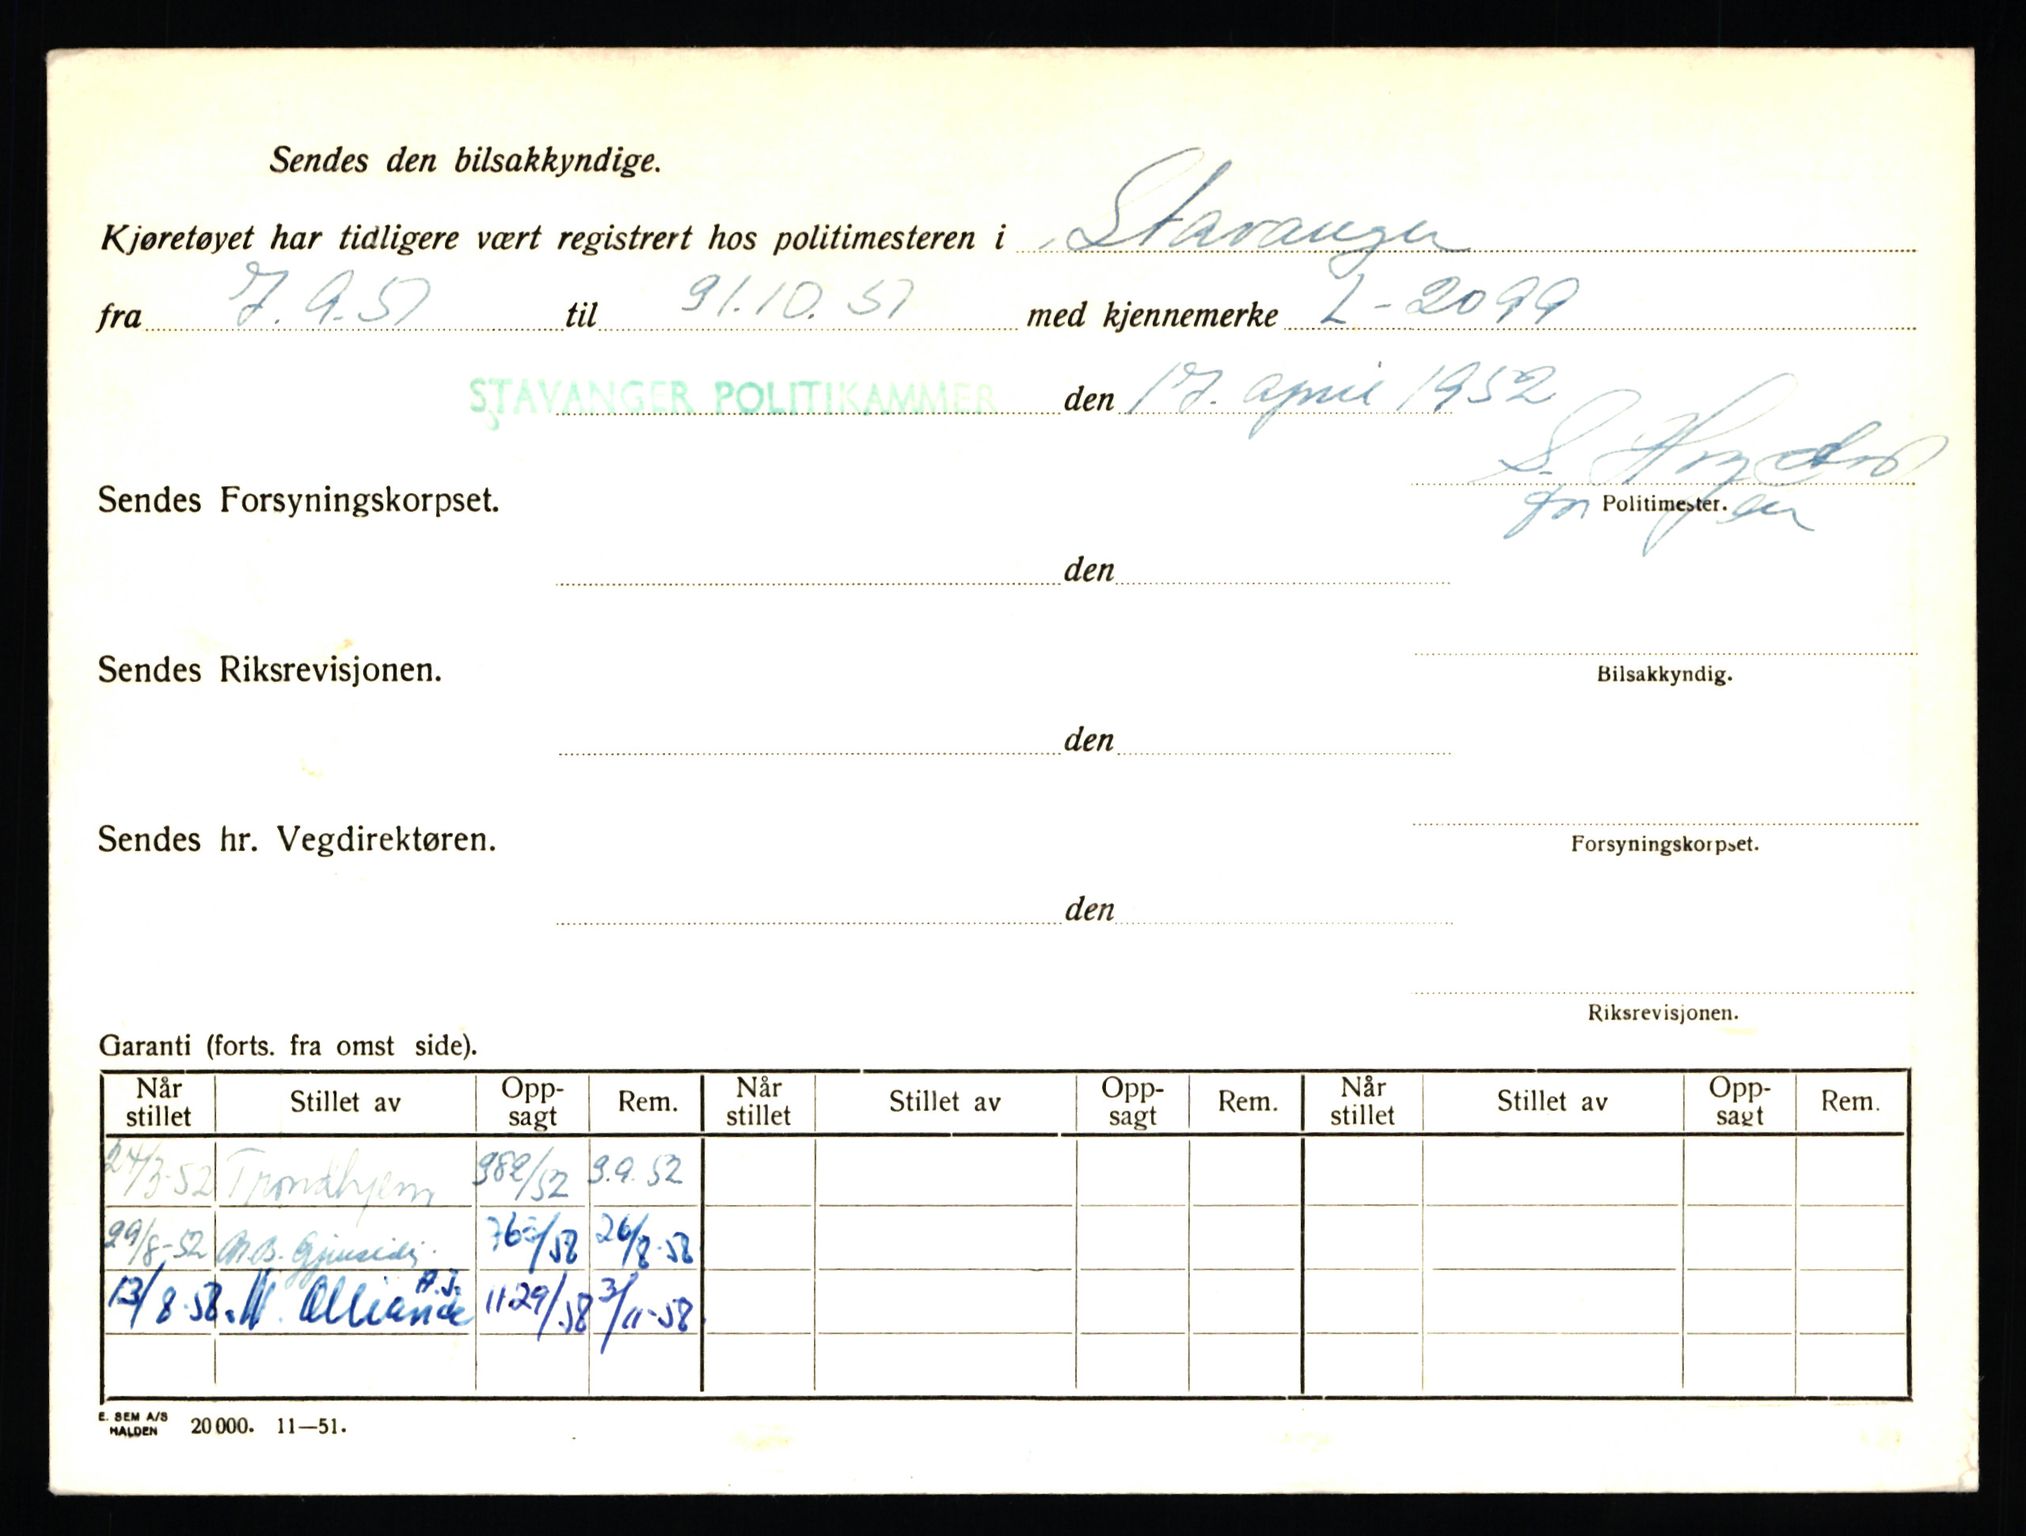 Sendes den bilsakkyndige.
Kjøretøyet har tidligere vært registrert hos politimesteren i Stavanger
fra 7.9.51 til 31.10.51 med kjennemerke L-2099
STAVANGER POLITIKAMMER den 17. april 1952
Sendes Forsyningskorpset.
Politimester.
den
Sendes Riksrevisjonen.
Bilsakkyndig.
den
Sendes hr. Vegdirektøren.
Forsyningskorpset.
den
Riksrevisjonen.
Garanti (forts. fra omst side).
Når stillet Stillet av Opp-sagt Rem. Når stillet Stillet av Opp-sagt Rem. Når stillet Stillet av Opp-sagt Rem.
24/3-52 Trondhjem 982/52 3.9.52
29/8-52 N.B. Gjensidi. 763/58 26/8-58
13/8-58 N. Alliance A.S. 1129/58 3/11-58
E. SEM A/S HALDEN 20000. 11—51.